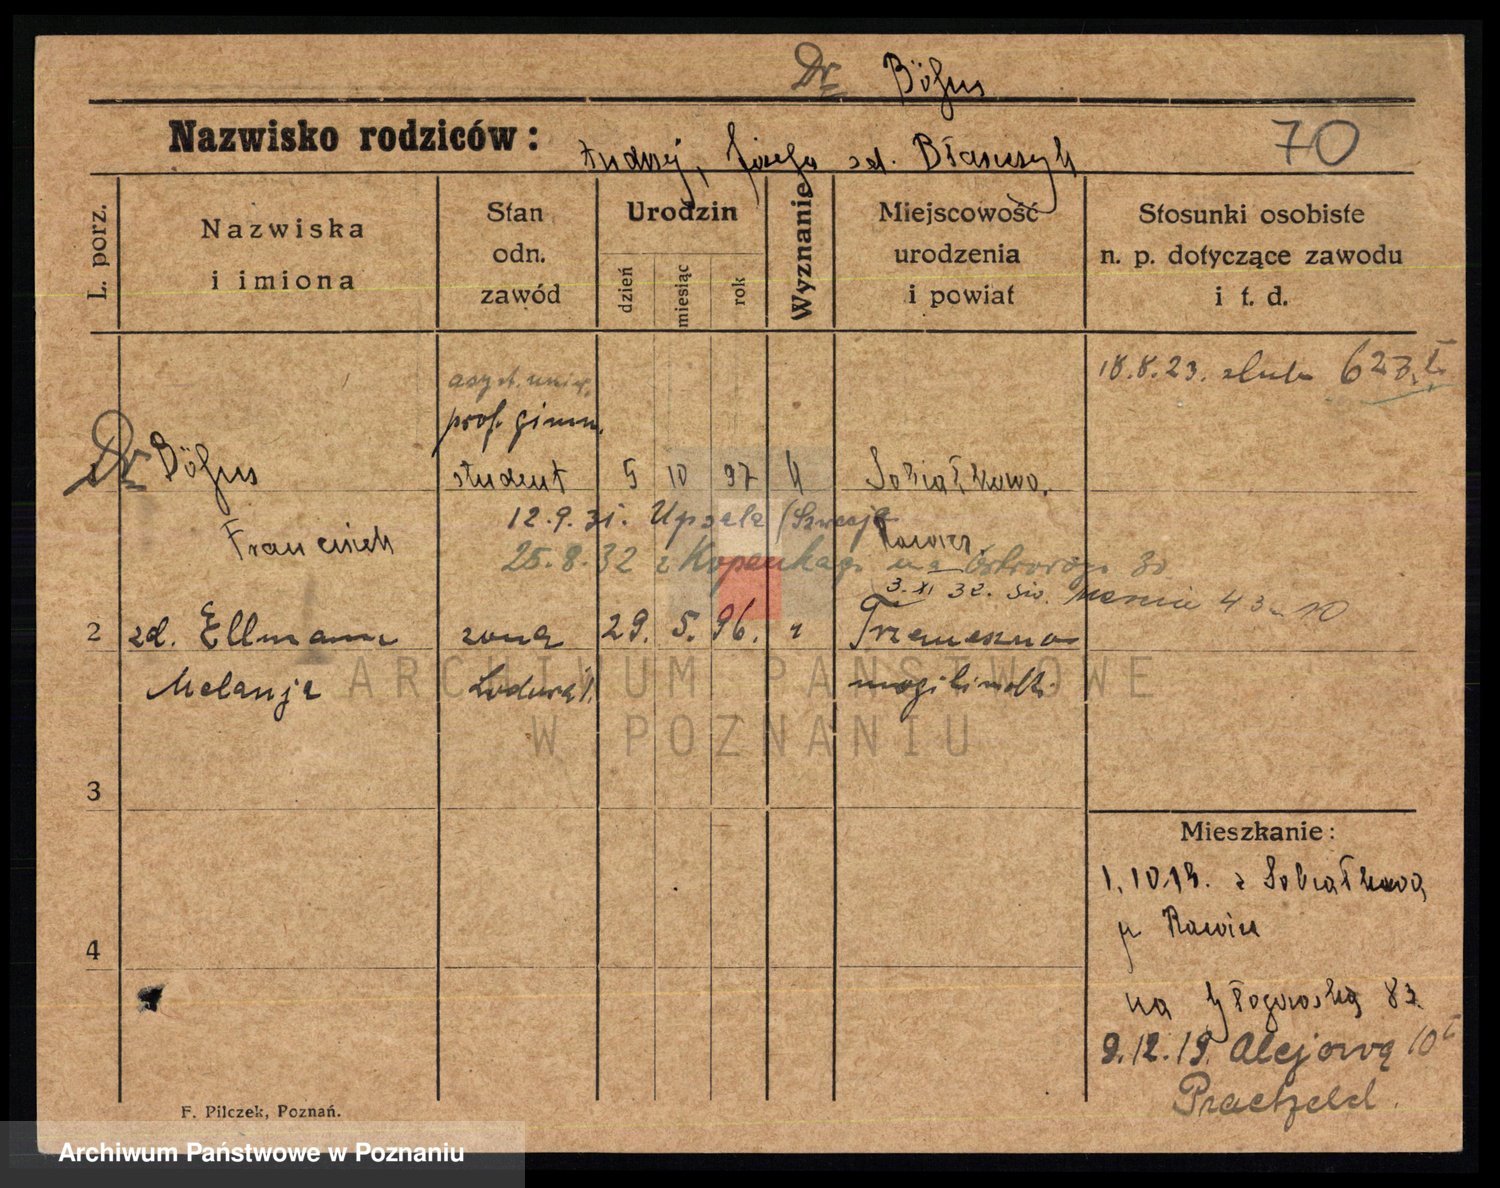 Dr Böhus
Nazwisko rodziców: Andrzej, Józefa zd. Błaszczyk
70
L. porz.
Nazwiska
i imiona
Stan
odn.
zawód
Urodzin
dzień
miesiąc
rok
Wyznanie
Miejscowość
urodzenia
i powiat
Stosunki osobiste
n. p. dotyczące zawodu
i t. d.
18.8.23.
asyst. uniw.
prof. gimn.
Dr Böhus student 5 10 97 Sobiałkowo.
12.9.31. Upsala (Szwecja
Franciszek Rawicz.
25.8.32 z Kopenhagi na Ostroroga
3.XI 32.
2 zd. Ellmann żona 29. 5. 96. Trzemeszno
Melanja mogilnicki
ARCHIWUM PAŃSTWOWE
W POZNANIU
3
Mieszkanie:
z Sobiałkowa
p Rawicz
4
na Głogowską 83.
9.12.19. Alejową 10
F. Pilczek, Poznań.
Archiwum Państwowe w Poznaniu